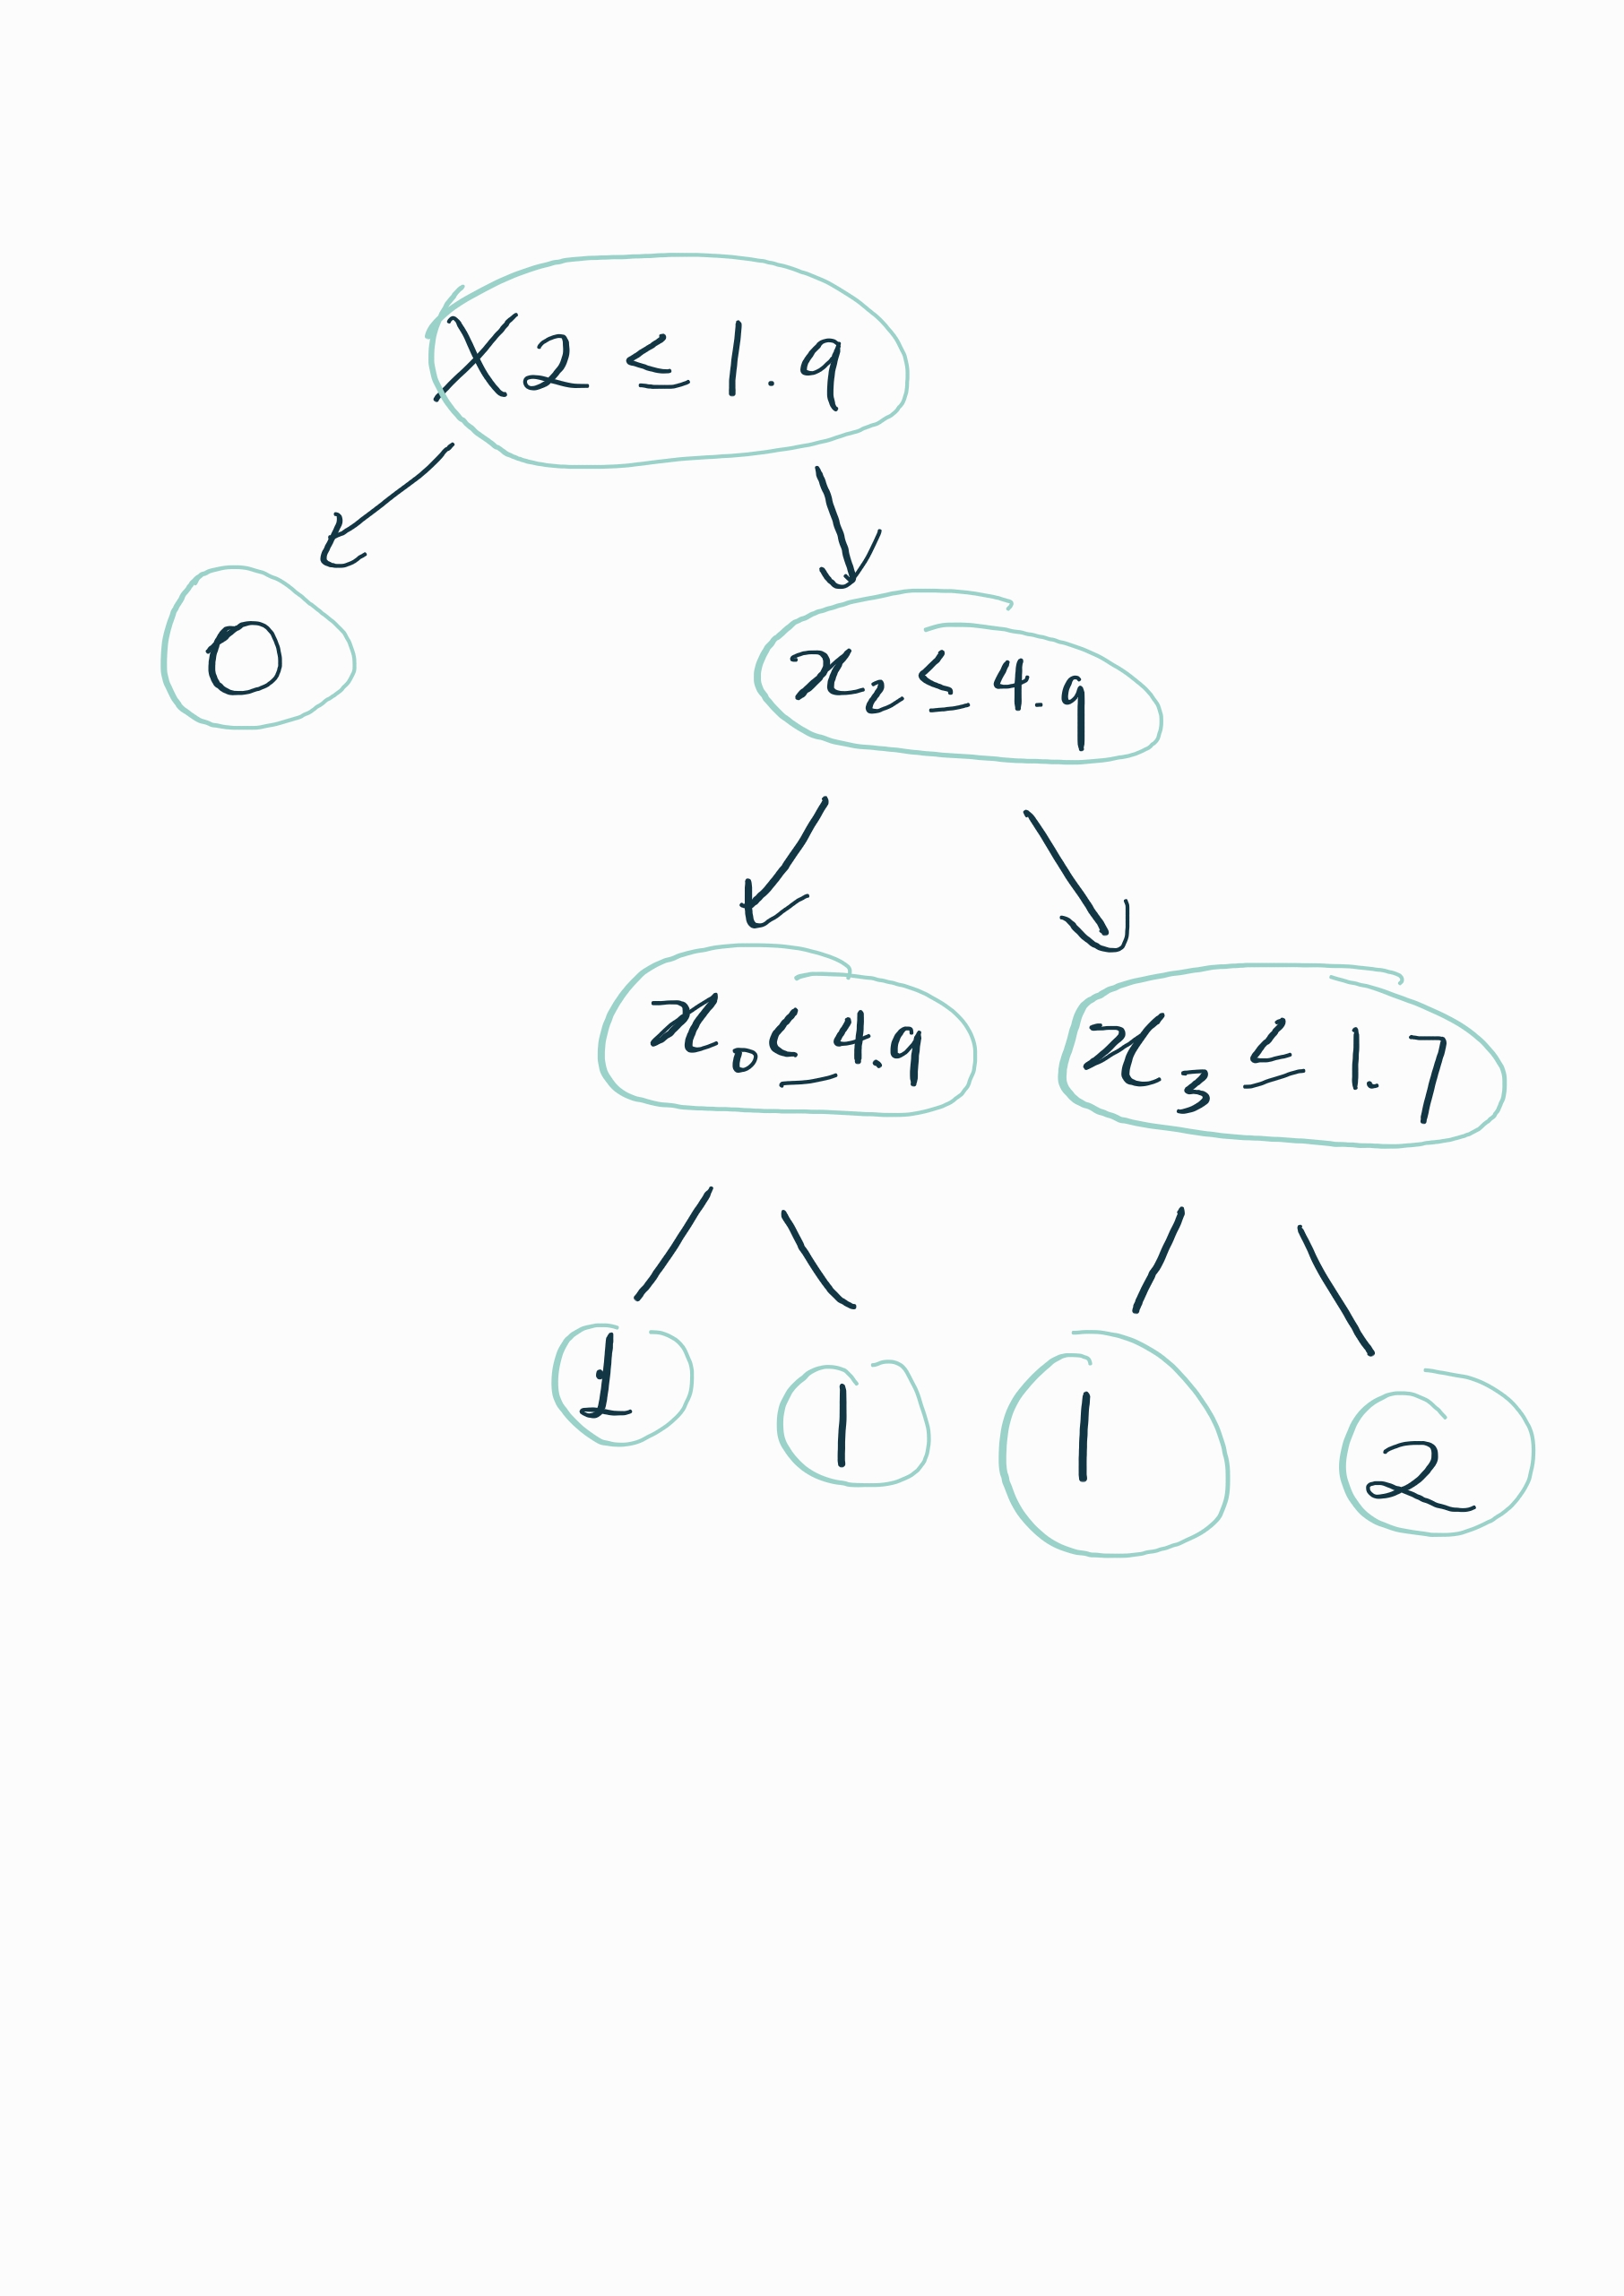 X2 ≤ 1.9
0
x₂ ≤ 4.9
x₀ ≤ 4.9
x₃ ≤ 1.7
1
1
1
2